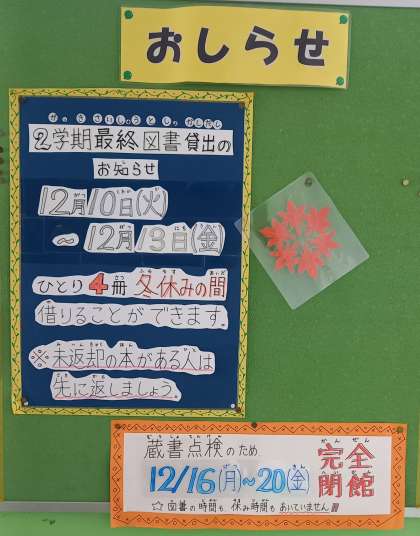 おしらせ
2学期最終図書貸出の
お知らせ
12月10日(火)
~12月13日(金)
ひとり4冊冬休みの間
借りることができます。
※未返却の本がある人は
先に返しましょう。
蔵書点検のため
12/16(月)~20(金)
完全
閉館
☆図書の時間も休み時間もあいていません